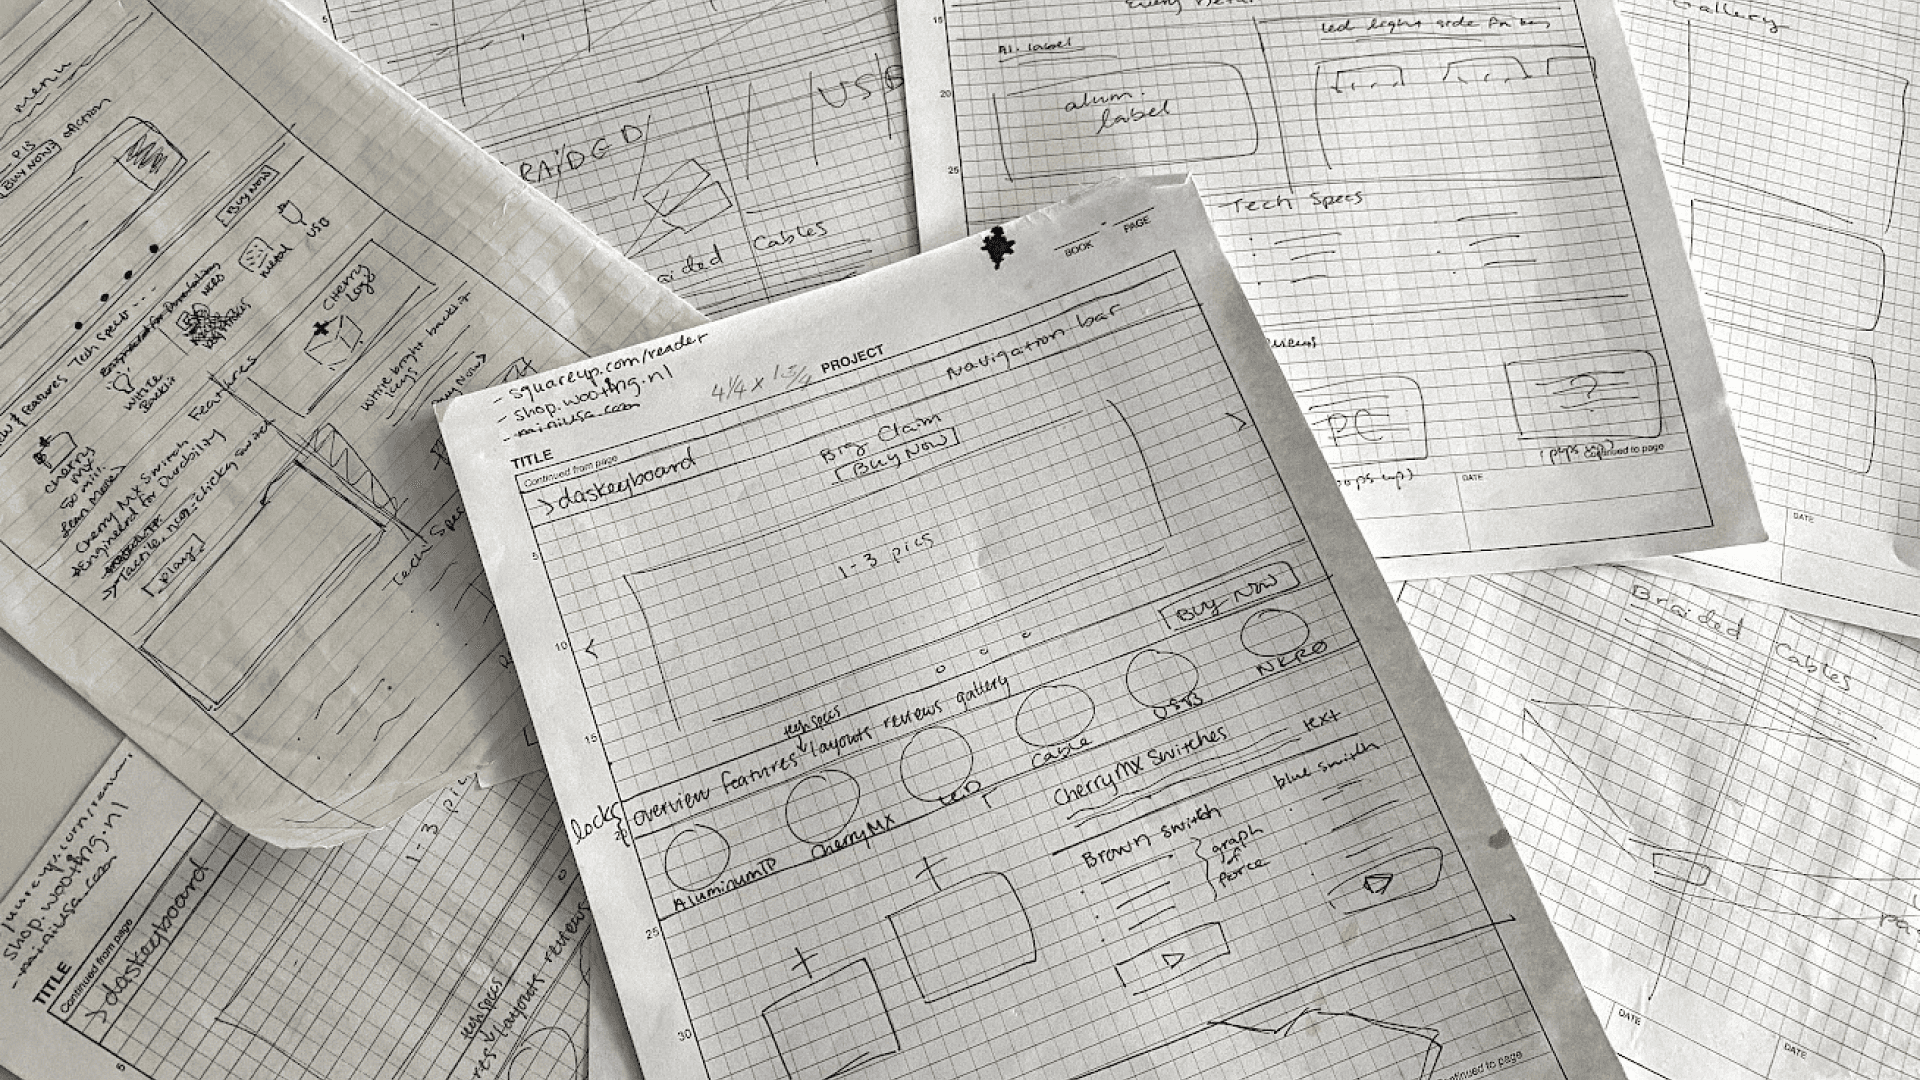 menu
BUY NOW
action
BUY NOW
USB
metal
NKRO
Tech Specs
White
Backlit
Features
Cherry
Logo
White bright backlit
keys
Cherry
MX
50 mil.
Learn More
Cherry MX Switch
Engineered for Durability
Play
Tech Spec
5
USB
Cables
15
20
25
Al. label
alum.
label
led light side
Tech Specs
PC
?
continued to page
DATE
Gallery
DATE
- squareup.com/reader
- shop.wooting.nl
- miniusa.com
4 1/4 x 1 3/4
PROJECT
BOOK
PAGE
TITLE
Continued from page
Navigation bar
>daskeyboard
Big Claim
BUY NOW
5
1-3 pics
10
<
>
BUY NOW
15
tech specs
overview features layouts reviews gallery
lock
20
AluminumTP
CherryMX
LED
Cable
USB
NKRO
CherryMX Switches
text
Brown Switch
blue switch
graph
of
force
25
30
continued to page
Braided
Cables
DATE
DATE
shop.wooting.nl
miniusa.com
TITLE
Continued from page
>daskeyboard
1-3 pic
tech specs
layouts reviews
5